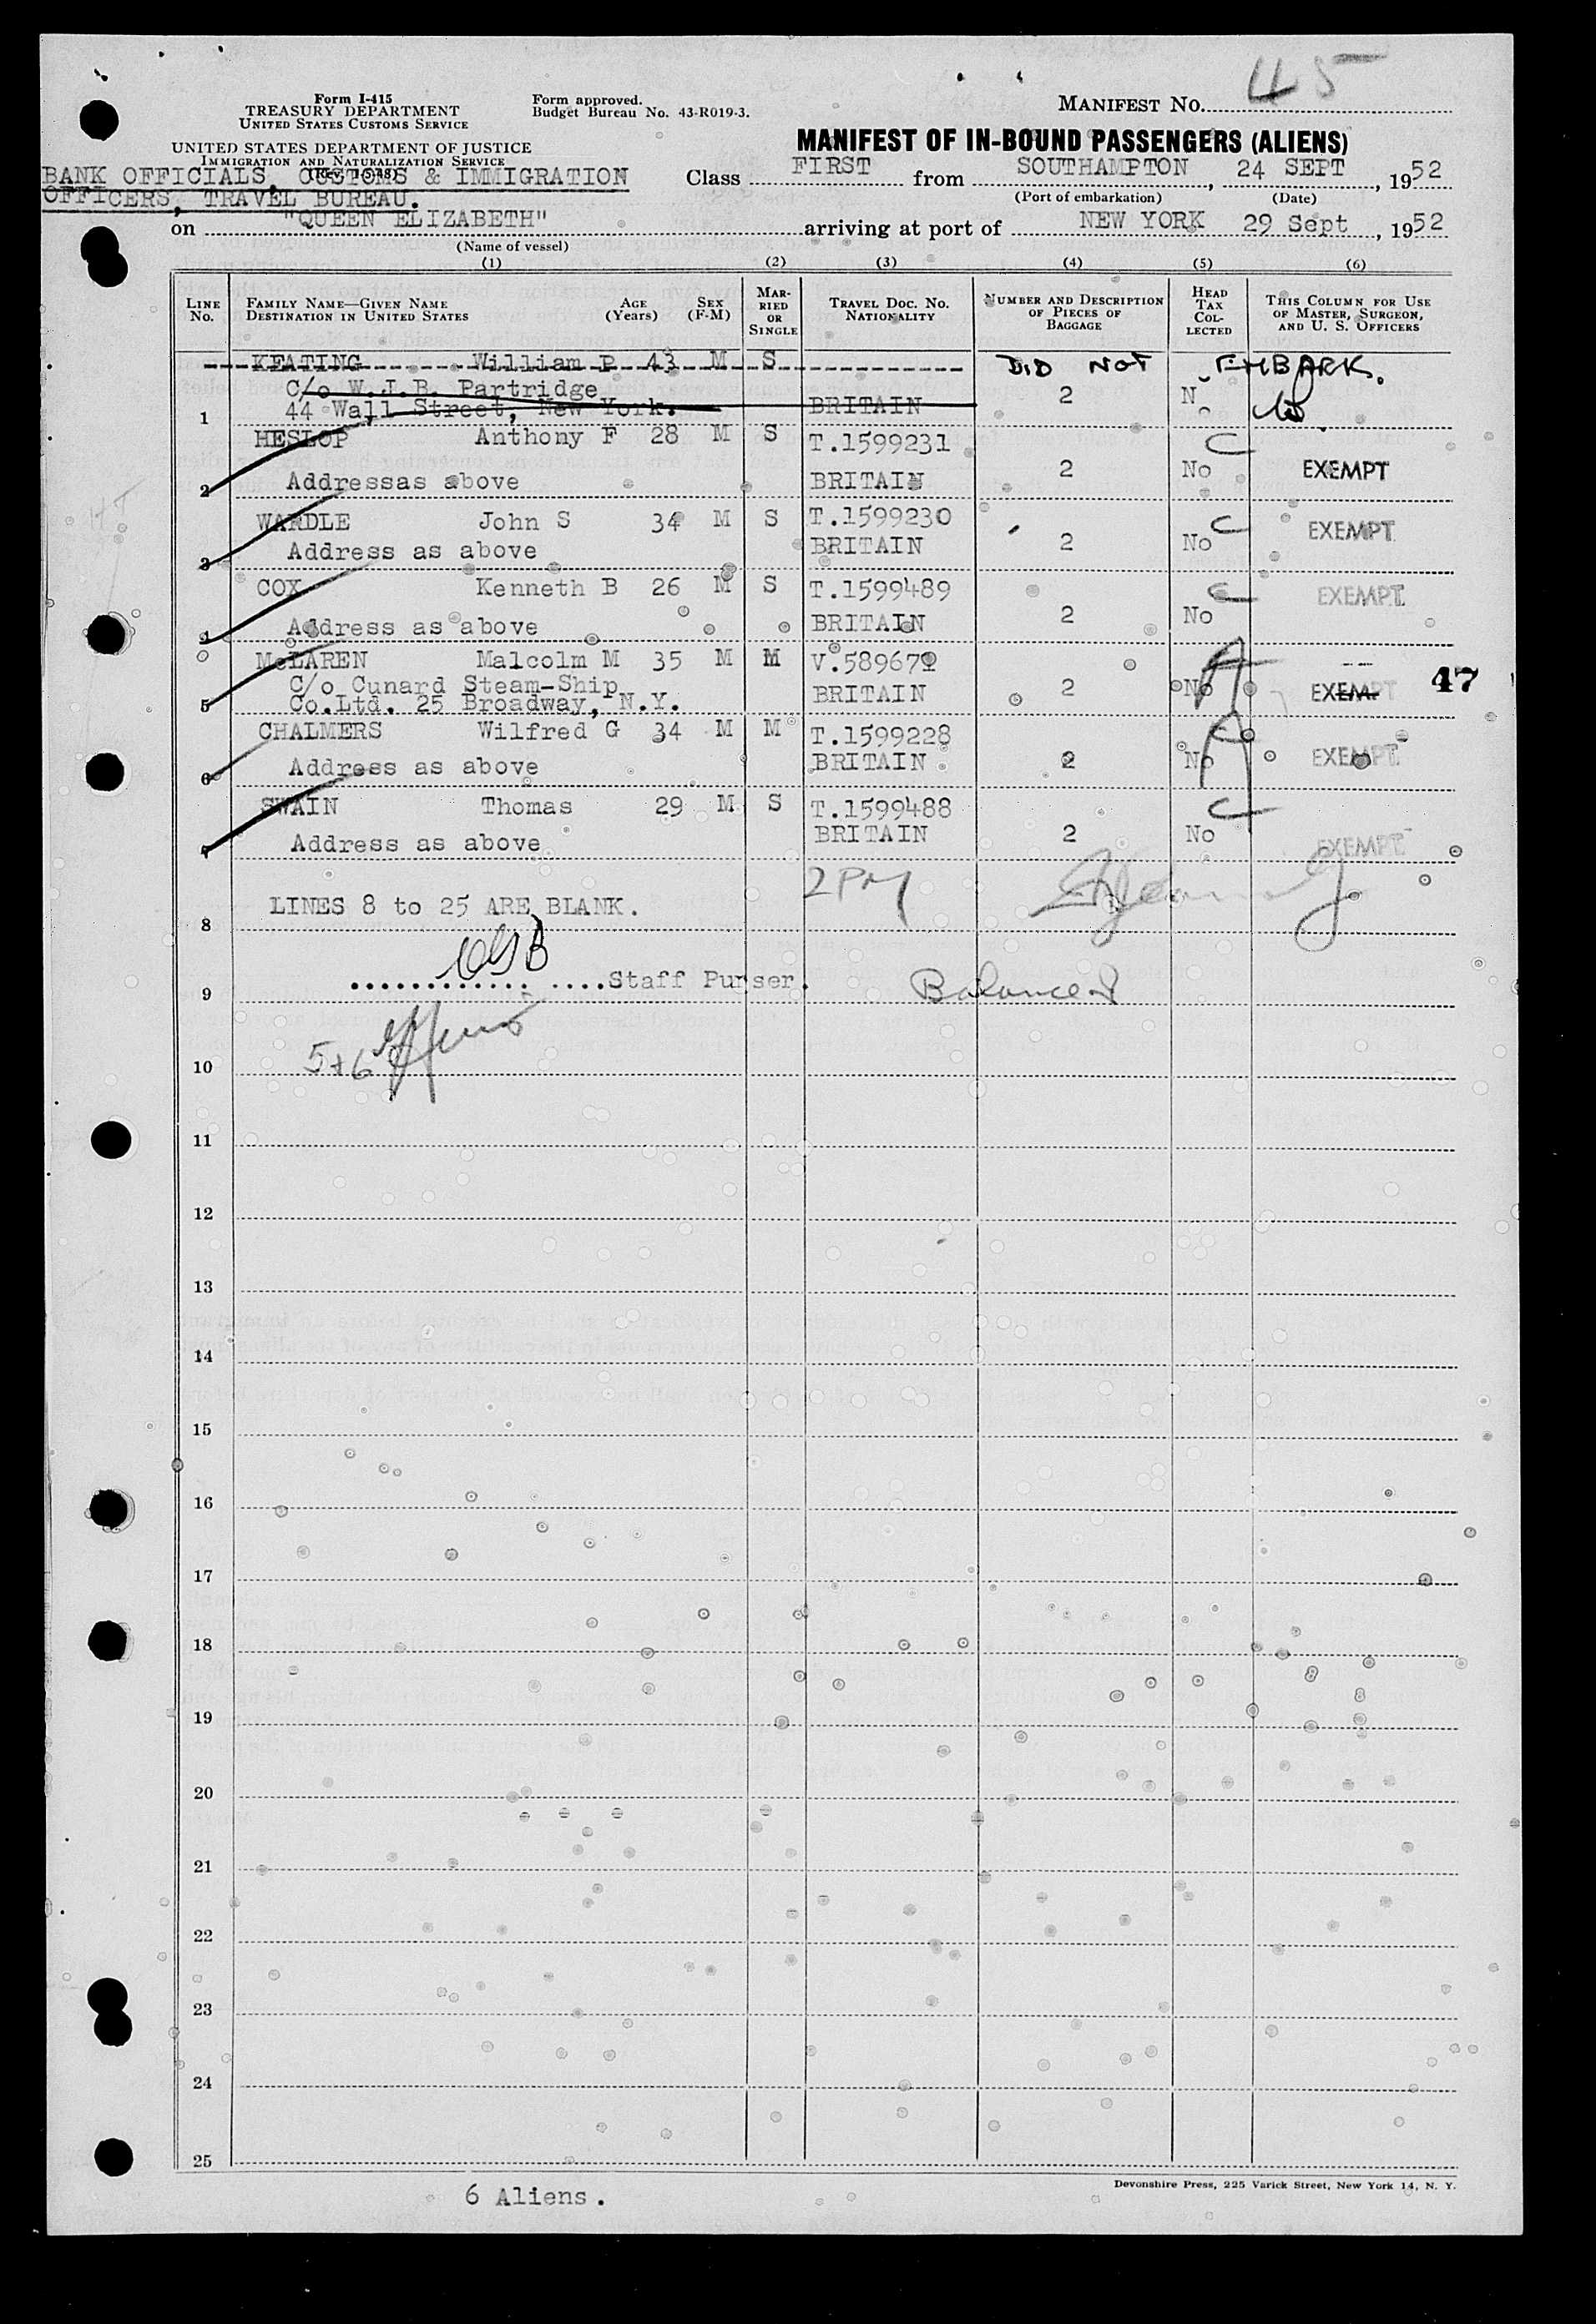 Form I-415
TREASURY DEPARTMENT
UNITED STATES CUSTOMS SERVICE
Form approved.
Budget Bureau No. 43-R019-3.
MANIFEST NO. 45
UNITED STATES DEPARTMENT OF JUSTICE
IMMIGRATION AND NATURALIZATION SERVICE
MANIFEST OF IN-BOUND PASSENGERS (ALIENS)
BANK OFFICIALS, CUSTOMS & IMMIGRATION
OFFICERS, TRAVEL BUREAU.
Class FIRST from SOUTHAMPTON, 24 SEPT, 1952
(Port of embarkation) (Date)
on "QUEEN ELIZABETH" arriving at port of NEW YORK 29 Sept, 1952
(Name of vessel)
(1) (2) (3) (4) (5) (6)
LINE No. FAMILY NAME—GIVEN NAME DESTINATION IN UNITED STATES AGE (Years) SEX (F-M) MARRIED OR SINGLE TRAVEL DOC. NO. NATIONALITY NUMBER AND DESCRIPTION OF PIECES OF BAGGAGE HEAD TAX COLLECTED THIS COLUMN FOR USE OF MASTER, SURGEON, AND U. S. OFFICERS
KEATING William P 43 M S DID NOT EMBARK.
C/o W.J.B. Partridge 2 N
1 44 Wall Street, New York. BRITAIN
HESLOP Anthony F 28 M S T.1599231 C
2 Addressas above BRITAIN 2 No EXEMPT
WARDLE John S 34 M S T.1599230 C
3 Address as above BRITAIN 2 No EXEMPT
COX Kenneth B 26 M S T.1599489 C EXEMPT
4 Address as above BRITAIN 2 No
McLAREN Malcolm M 35 M M V.589679 A
C/o Cunard Steam-Ship
5 Co.Ltd. 25 Broadway, N.Y. BRITAIN 2 No EXEMPT 47
CHALMERS Wilfred G 34 M M T.1599228 C A
6 Address as above BRITAIN 2 No EXEMPT
SWAIN Thomas 29 M S T.1599488 C
7 Address as above BRITAIN 2 No EXEMPT
2 PM
8 LINES 8 to 25 ARE BLANK.
9 Staff Purser. Balanced
10 5+6
11
12
13
14
15
16
17
18
19
20
21
22
23
24
25
6 Aliens.
Devonshire Press, 225 Varick Street, New York 14, N. Y.